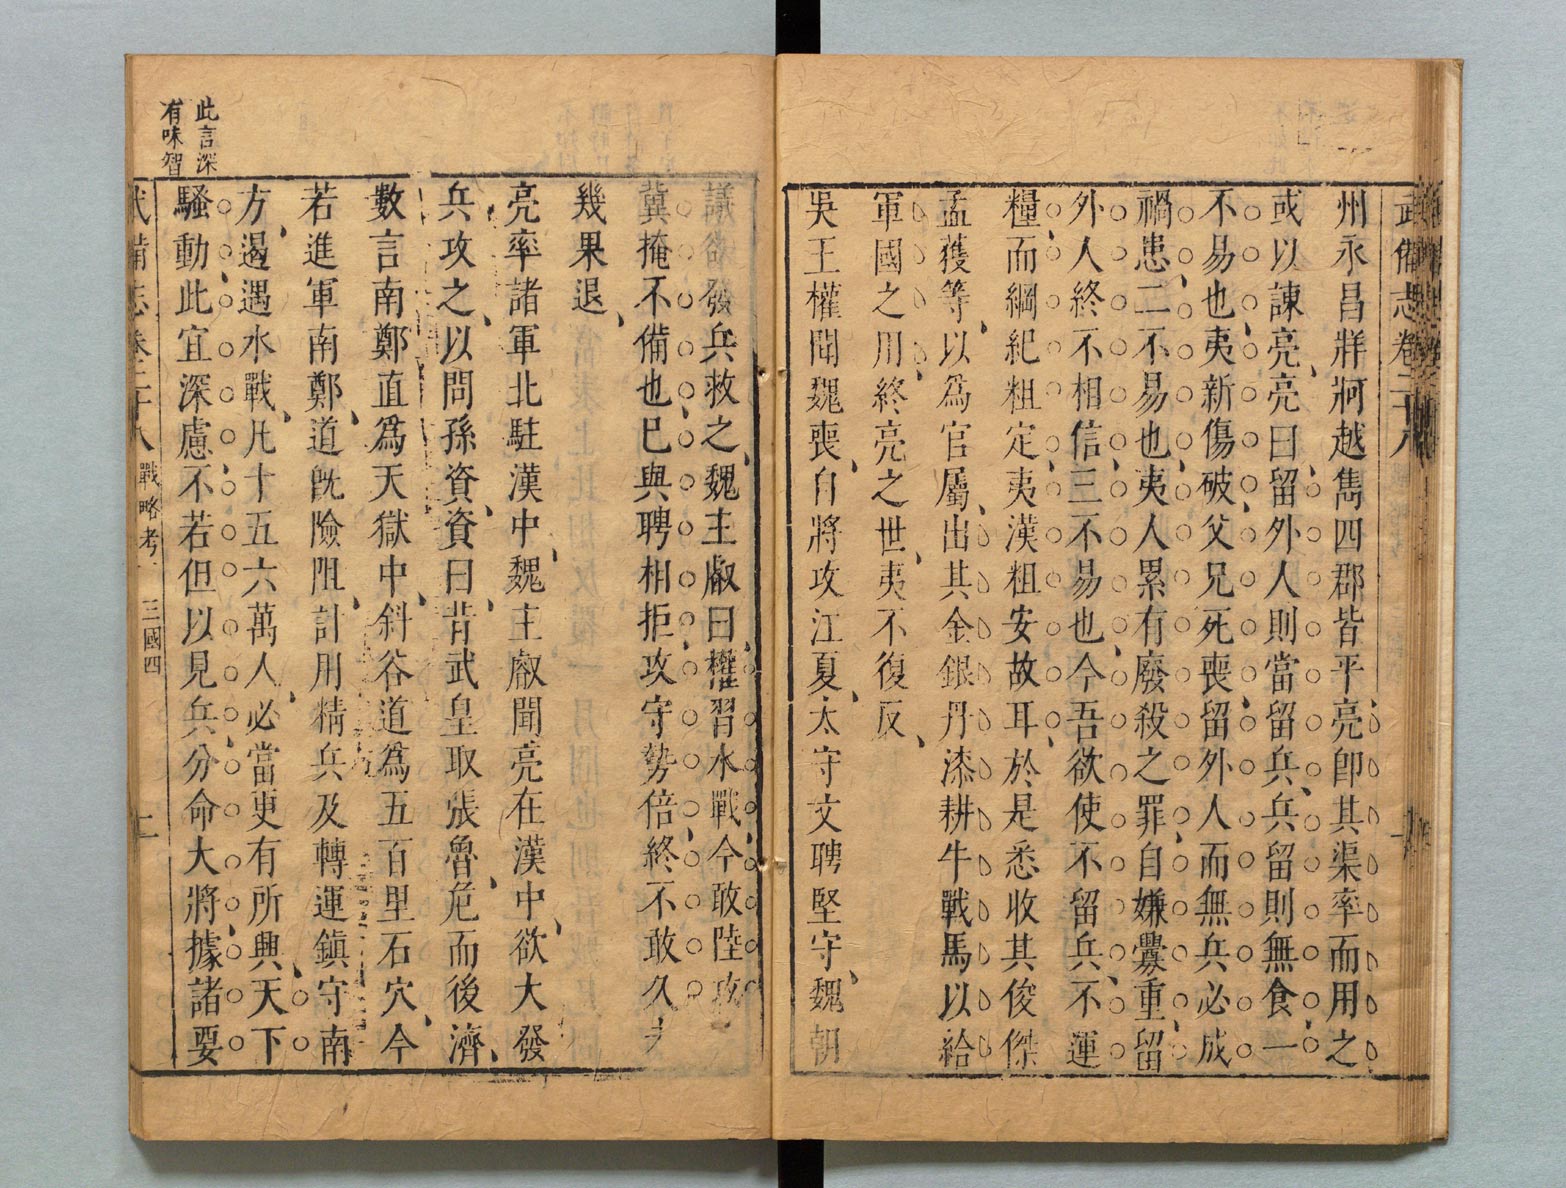 武備志卷二十八
州永昌牂牁越雋四郡皆平亮卽其渠率而用之
或以諫亮亮曰留外人則當留兵兵留則無食一
不易也夷新傷破父兄死喪留外人而無兵必成
禍患二不易也夷人累有廢殺之罪自嫌釁重留
外人終不相信三不易也今吾欲使不留兵不運
糧而綱紀粗定夷漢粗安故耳於是悉收其俊傑
孟獲等以爲官屬出其金銀丹漆耕牛戰馬以給
軍國之用終亮之世夷不復反
吳王權聞魏喪自將攻江夏太守文聘堅守魏朝
議欲發兵救之魏主叡曰權習水戰今敢陸攻
冀掩不備也已與聘相拒攻守勢倍終不敢久
幾果退
亮率諸軍北駐漢中魏主叡聞亮在漢中欲大發
兵攻之以問孫資資曰昔武皇取張魯危而後濟
數言南鄭直爲天獄中斜谷道爲五百里石穴今
若進軍南鄭道旣險阻計用精兵及轉運鎭守南
方遏遇水戰凡十五六萬人必當更有所興天下
騷動此宜深慮不若但以見兵分命大將據諸要
此言深
有味智
武備志卷二十八 戰略考 三國四 二